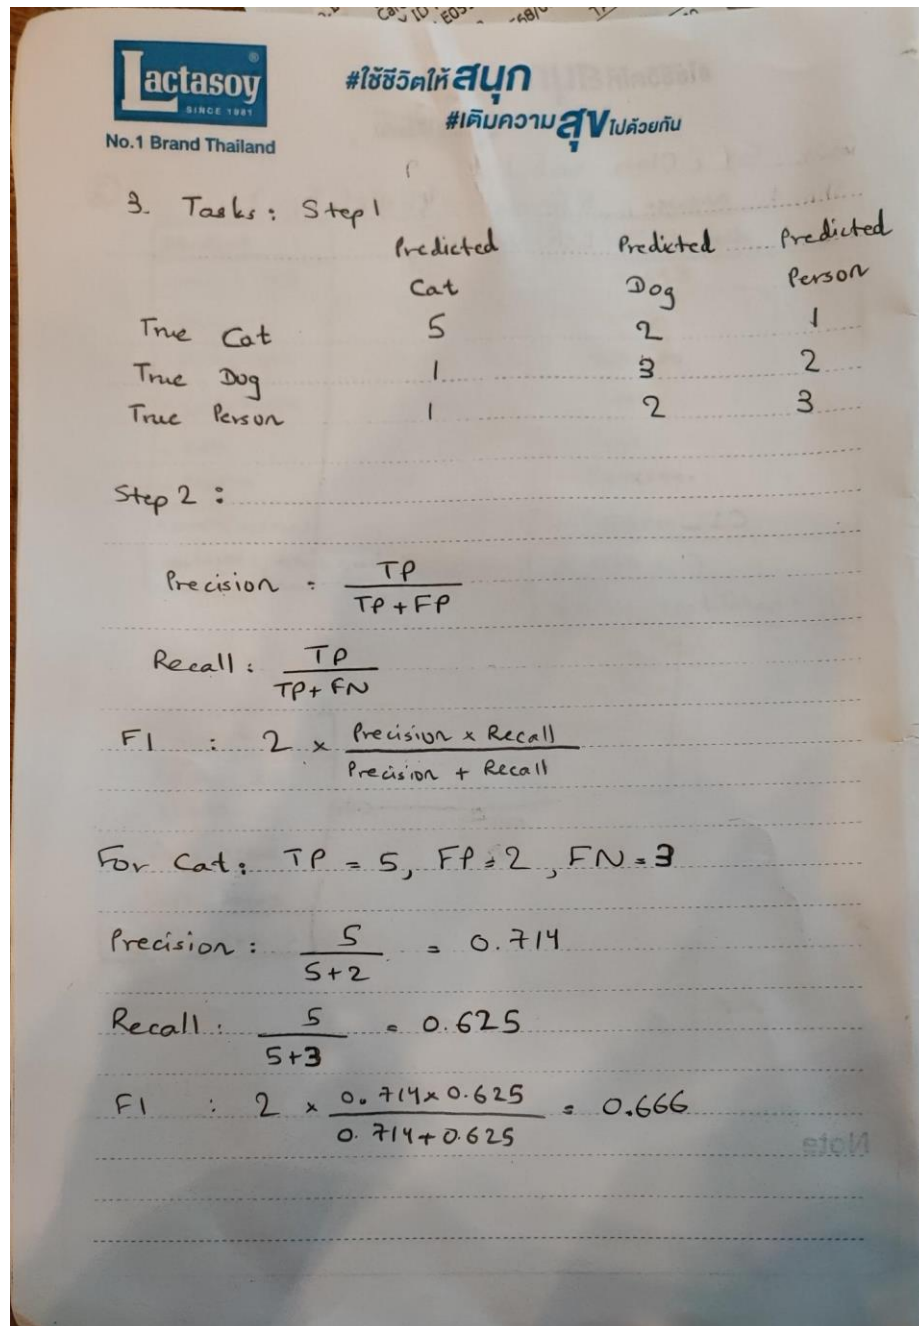 Lactasoy®
SINCE 1981
No.1 Brand Thailand
#ใช้ชีวิตให้สนุก
#เติมความสุขไปด้วยกัน
3. Tasks: Step 1
Predicted Cat Predicted Dog Predicted Person
True Cat 5 2 1
True Dog 1 3 2
True Person 1 2 3
Step 2:
Precision = TP / TP + FP
Recall: TP / TP + FN
F1 : 2 × Precision × Recall / Precision + Recall
For Cat: TP = 5, FP = 2, FN = 3
Precision: 5 / 5+2 = 0.714
Recall: 5 / 5+3 = 0.625
F1 : 2 × 0.714 × 0.625 / 0.714 + 0.625 = 0.666
Note